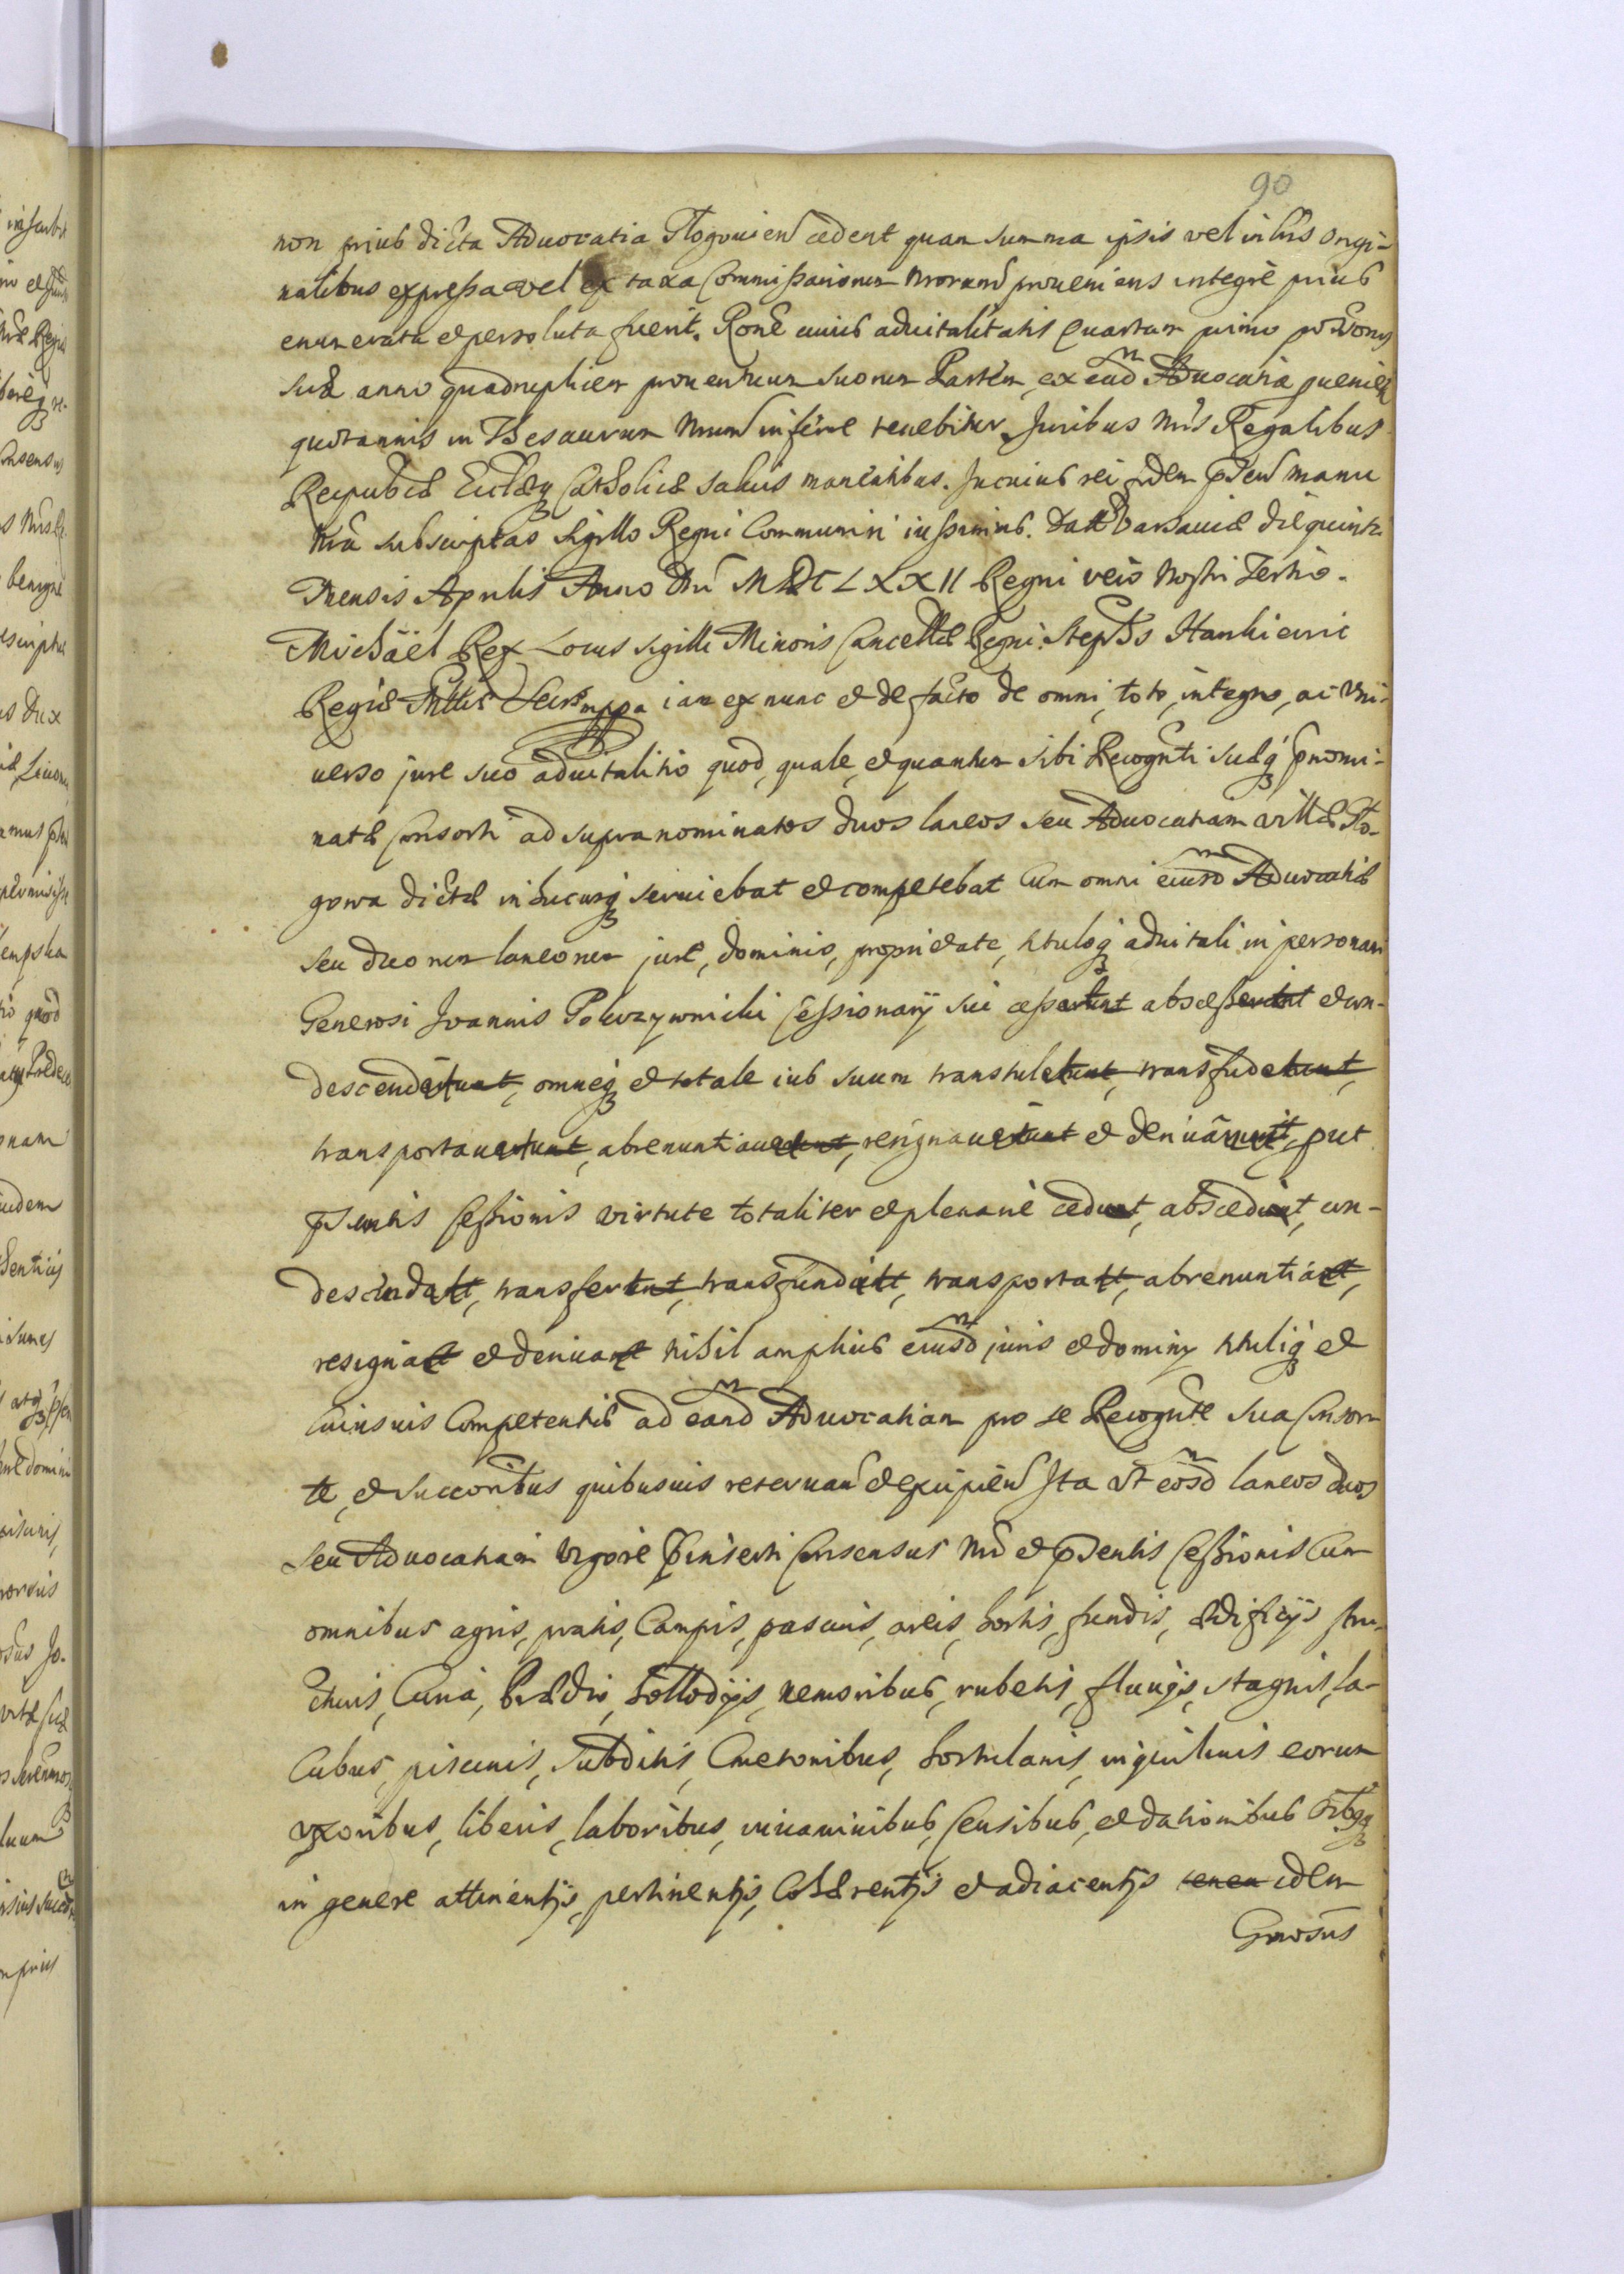 90
non prius dicta Advocatia Tlogoviens cedent quam summa ipsis vel in lris origi-
nalibus expressa vel ex taxa Commissariorum nrorum proveniens integrè prius
enumerata et persoluta fuerit. Rone cuius advitalitatis Quartam primo
suæ anno quadruplicem proventuum suorum Partem, ex ead Advocatia
quotannis in Thesaurum nrum inferre tenebitur. Juribus nris Regalibus
Reipublæ Ecclæq Catholicæ salvis manentibus. In cuius rei fidem psen manu
nra subscriptas Sigillo Regni Communiri iussimus. Datt Varsaviæ die quinta
Mensis Aprilis Anno Dni MDCLXXII Regni verò nostri Tertio.
Michaël Rex Locus sigilli Minoris Cancellæ Regni. Stephs Hankiewic
Regiæ Mttis Secrs mppa iam ex nunc et de facto de omni, toto, integro, ac uni-
verso jure suo advitalitio quod, quale, et quantum sibi Recognti suæq pnomi-
natæ Consorti ad supranominatos duos laneos seu Advocatiam villæ Tlo-
gowa dictæ in hucusq serviebat et competebat Cum omni eiusd Advocatiæ
seu duorum laneorum jure, dominio, proprietate, tituloq advitali in personam
Generosi Joannis Pokrzywnicki Cessionarij sui cesserunt abscesserunt et con-
descenderunt, omneq et totale ius suum transtulerunt, transfuderunt,
transportaverunt, abrenuntiaverunt, resignaverunt et derivarunt, put
psentis Cessionis virtute totaliter et plenariè cedunt, abscedunt, con-
descendatt, transferunt, transfundutt, transportatt, abrenuntiatt,
resignatt et derivant nihil amplius eiusd juris et dominy tituliq et
cuiusvis Competentiæ ad eand Advocatiam pro se Recognte sua Consor-
te, et Succoribus quibusvis reservan et excipien Ita ut eosd laneos duos
seu Advocatiam vigore pinserti Consensus nri et psentis Cessionis Cum
omnibus agris, pratis, Campis, pascuis, areis, hortis, fundis, ædificijs stru-
cturis, Curia, Prædio, Follodijs, nemoribus, rubetis, fluvijs, stagnis, la-
Cubus, piscinis, Subditis, Cmetonibus, hortulanis, inquilinis eorum
uxoribus, liberis, laboribus, iuvaminibus, Censibus, et dationibus oibsq
in genere attinentijs, pertinentijs, Cohærentijs et adiacentijs tenen idem
Gnosus